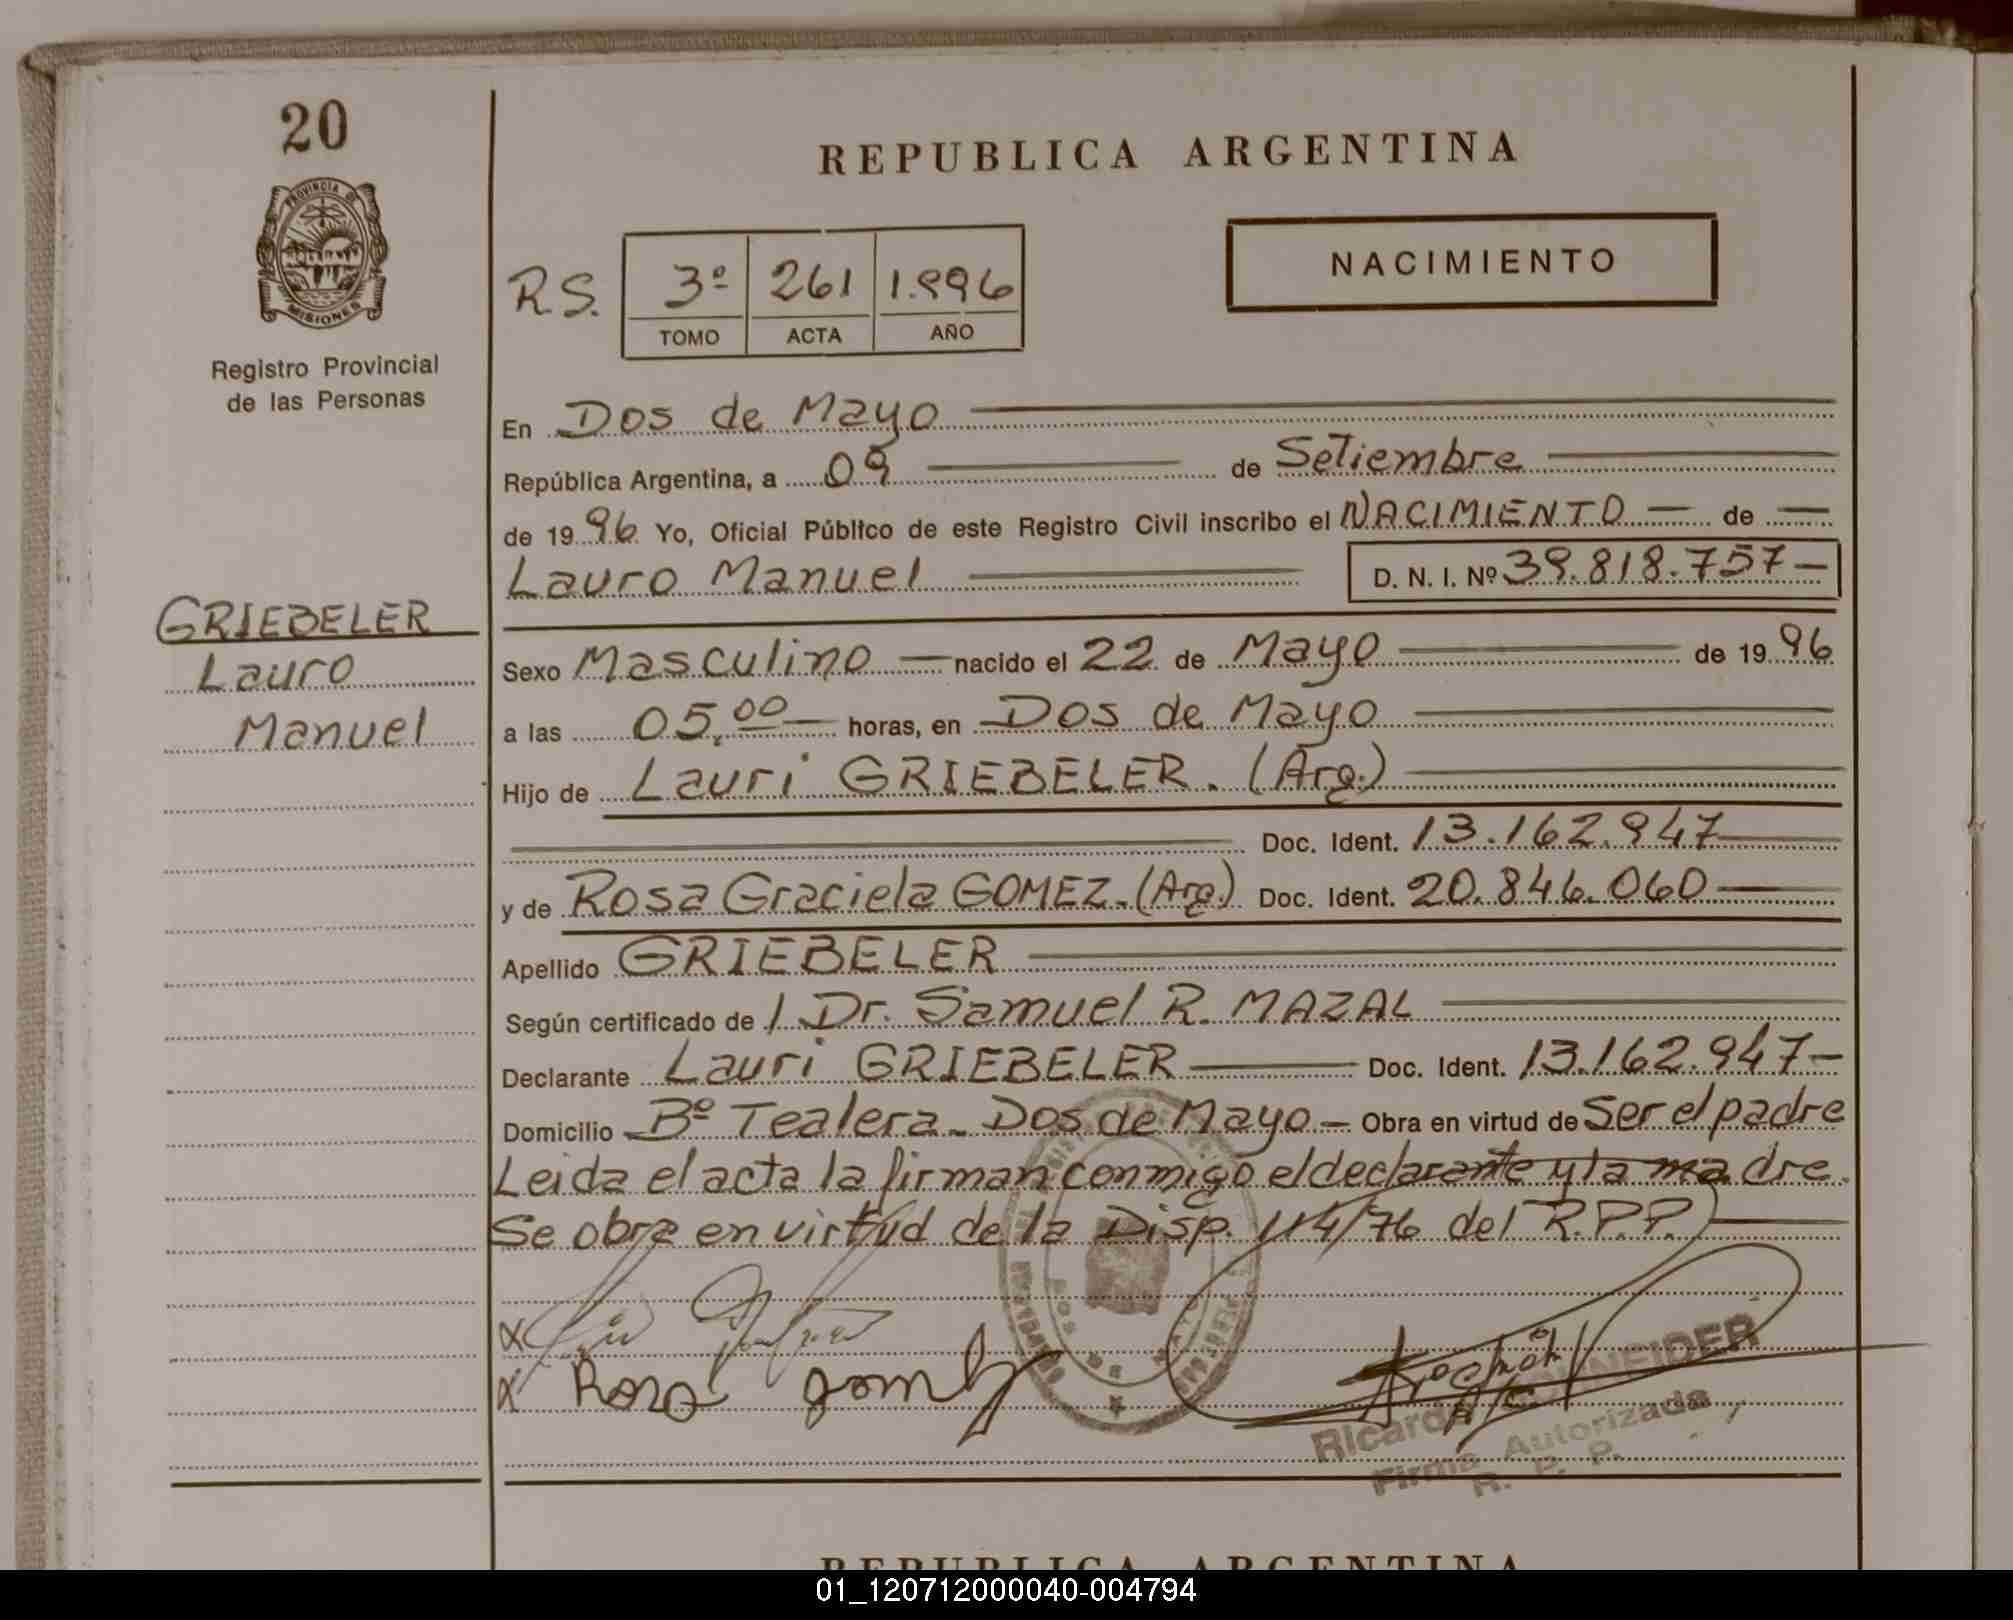 20
REPUBLICA ARGENTINA
PROVINCIA DE
MISIONES
Registro Provincial
de las Personas
R.S. 3º 261 1.996
TOMO ACTA AÑO
NACIMIENTO
En Dos de Mayo
República Argentina, a 09 de Setiembre
de 1996 Yo, Oficial Público de este Registro Civil inscribo el NACIMIENTO — de —
Lauro Manuel D. N. I. Nº 39.818.757—
GRIEBELER
Lauro
Manuel
Sexo Masculino — nacido el 22 de Mayo de 1996
a las 05,00 — horas, en Dos de Mayo
Hijo de Lauri GRIEBELER. (Arg.)
Doc. Ident. 13.162.947
y de Rosa Graciela GOMEZ.(Arg.) Doc. Ident. 20.846.060
Apellido GRIEBELER
Según certificado de / Dr. Samuel R. MAZAL
Declarante Lauri GRIEBELER Doc. Ident. 13.162.947—
Domicilio Bº Tealera. Dos de Mayo — Obra en virtud de Ser el padre
Leida el acta la firman conmigo el declarante y la madre.
Se obra en virtud de la Disp. 114/76 del R.P.P.
Rosa gomez
Ricardo SCHNEIDER
Firma Autorizada
R. P. P.
REPUBLICA ARGENTINA
01_120712000040-004794